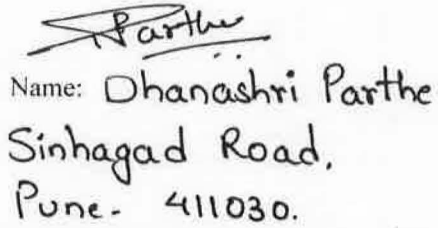 Parthe
Name: Dhanashri Parthe
Sinhagad Road,
Pune- 411030.